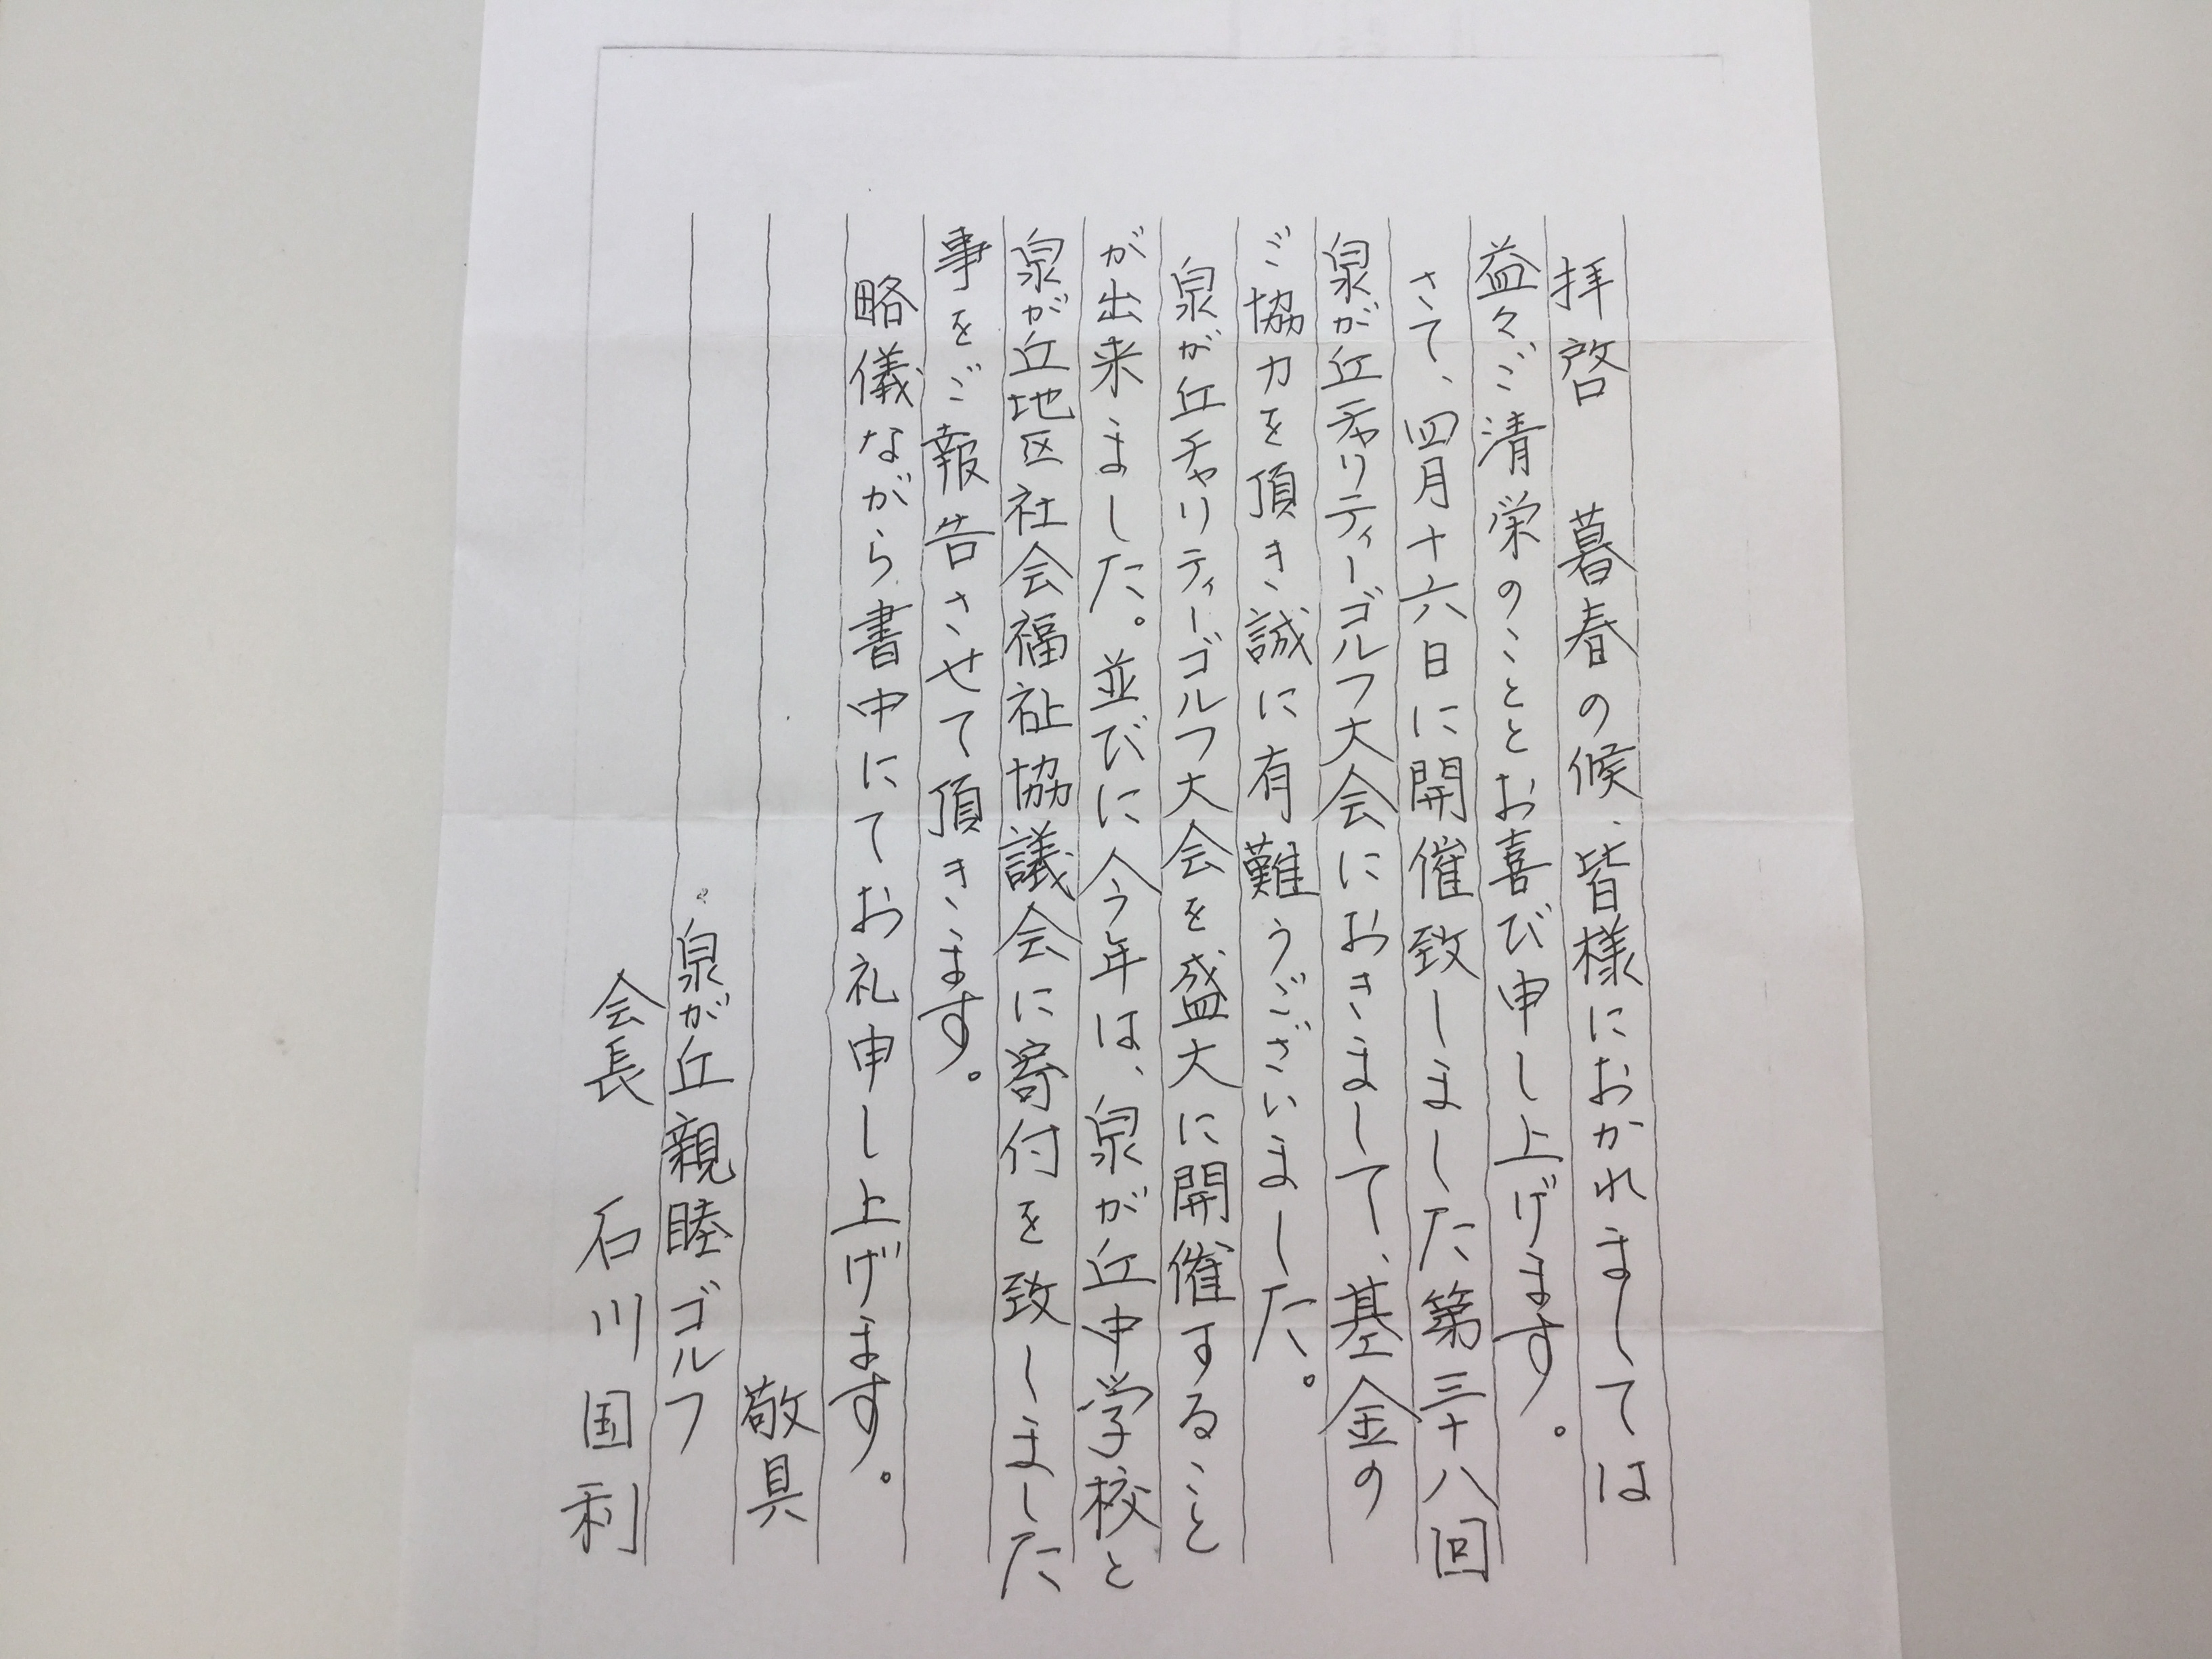 拝啓　暮春の候、皆様におかれましては
益々ご清栄のこととお喜び申し上げます。
さて、四月十六日に開催致しました第三十八回
泉が丘チャリティーゴルフ大会におきまして、基金の
ご協力を頂き、誠に有難うございました。
泉が丘チャリティーゴルフ大会を盛大に開催すること
が出来ました。並びに今年は、泉が丘中学校と
泉が丘地区社会福祉協議会に寄付を致しました
事をご報告させて頂きます。
略儀ながら書中にてお礼申し上げます。
敬具
泉が丘親睦ゴルフ
会長　石川国利